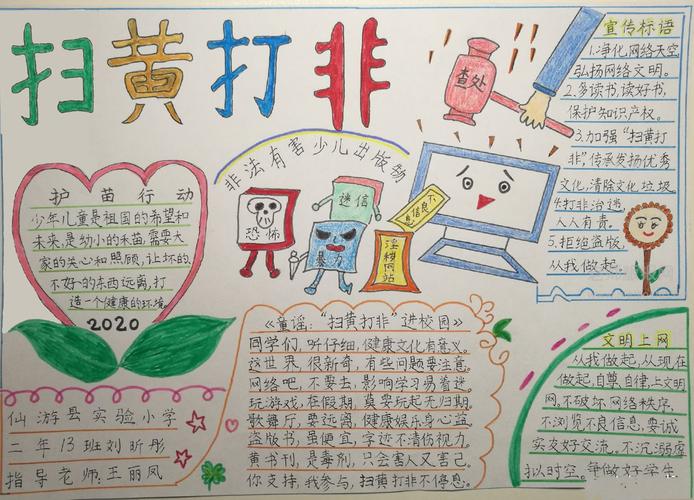 扫黄打非
查处
宣传标语
1.净化网络天空
弘扬网络文明。
2.多读书,读好书,
保护知识产权。
3.加强“扫黄打
非”,传承发扬优秀
文化,清除文化垃圾
4.打非治违,
人人有责。
5.拒绝盗版,
从我做起。
非法有害少儿出版物
恐怖
迷信
暴力
淫秽网站
不良信息
护苗行动
少年儿童是祖国的希望和
未来,是幼小的禾苗,需要大
家的关心和照顾,让坏的、
不好的东西远离,打
造一个健康的环境
2020
《童谣:“扫黄打非”进校园》
同学们,听仔细,健康文化有意义。
这世界,很新奇,有些问题要注意。
网络吧,不要去,影响学习易着迷。
玩游戏,在假期,莫要玩起无归期。
歌舞厅,要远离,健康娱乐身心益。
盗版书,虽便宜,字迹不清伤视力。
黄书刊,是毒剂,只会害人又害己。
你支持,我参与,扫黄打非不停息。
文明上网
从我做起,从现在
做起,自尊,自律,上文明
网,不破坏网络秩序,
不浏览不良信息,要诚
实友好交流。不沉溺虚
拟时空。争做好学生
仙游县实验小学
二年13班刘昕彤
指导老师:王丽凤